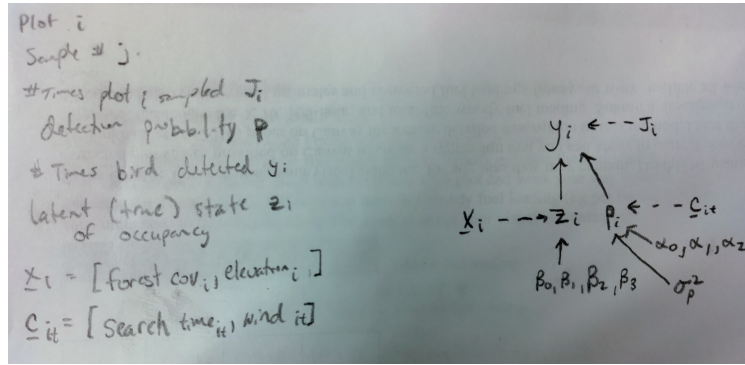 Plot i
Sample # j.
# Times plot i sampled Jᵢ
detection probability p
# Times bird detected yᵢ
latent (true) state zᵢ
of occupancy
xᵢ = [forest covᵢ, elevationᵢ]
cᵢₜ = [search timeᵢₜ, wind ᵢₜ]
yᵢ ← - - Jᵢ
xᵢ - - → zᵢ pᵢ ← - - cᵢₜ
α₀, α₁, α₂
β₀, β₁, β₂, β₃
σₚ²